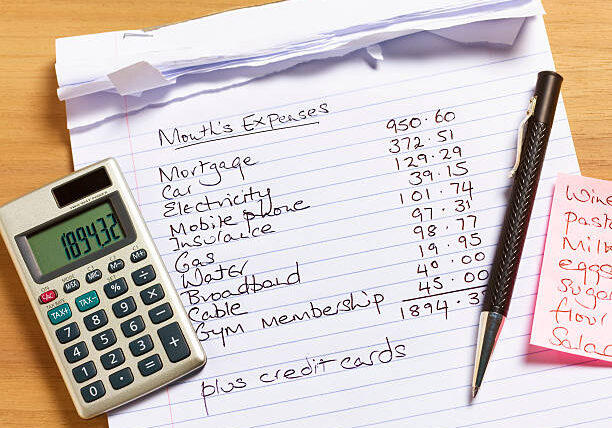 Month's Expenses
Mortgage 950.60
Car 372.51
Electricity 129.29
Mobile phone 39.15
Insurance 101.74
Gas 97.31
Water 98.77
Broadband 19.95
Cable 40.00
Gym Membership 45.00
1894.3
plus credit cards
1894.32
MODE
MRC M- M+
CAC MU % ÷
TAX+ TAX- × −
7 8 9
4 5 6
1 2 3 +
0 . =
Wine
pasta
Milk
eggs
sugar
flour